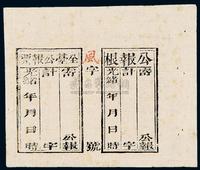 公報根
公報
計 字
光緒 年 月 日 時
風字 號
公報票
公報
計 字
光緒 年 月 日 時